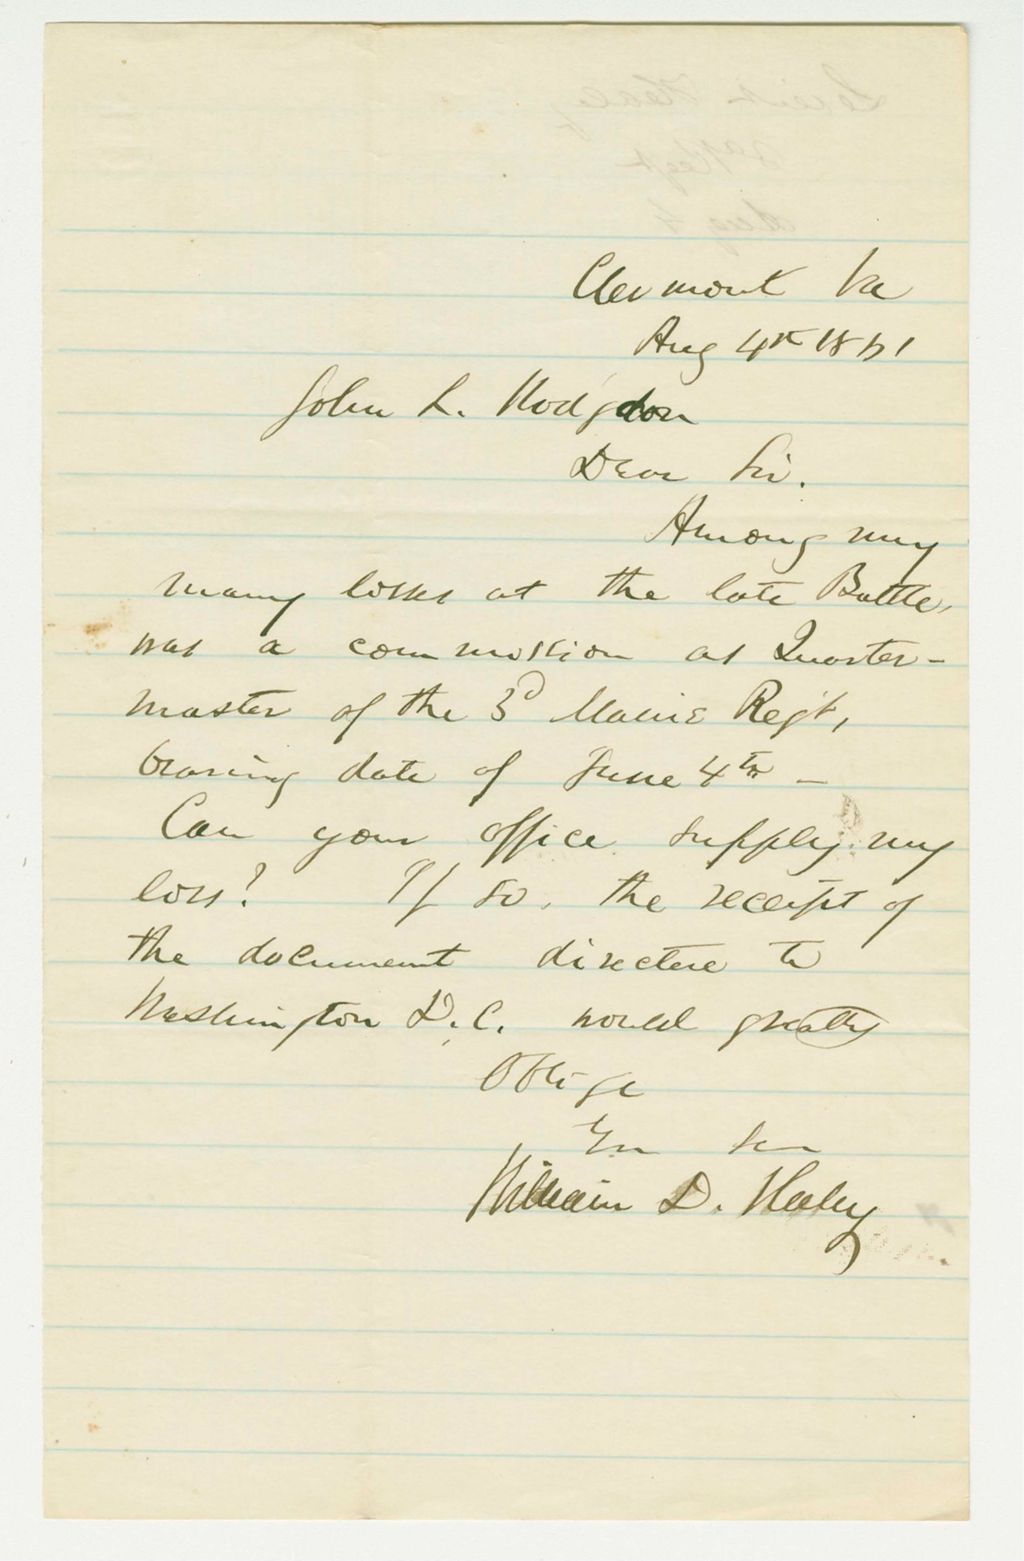 Clermont Va
Aug 4th 1861
John L. Hodgdon
Dear Sir.
Among my
many losses at the late Battle,
was a commission as Quarter-
master of the 3d Maine Regt,
bearing date of June 4th -
Can your office supply my
loss? If so, the receipt of
the document directed to
Washington D.C. would greatly
Oblige
William D. Haley